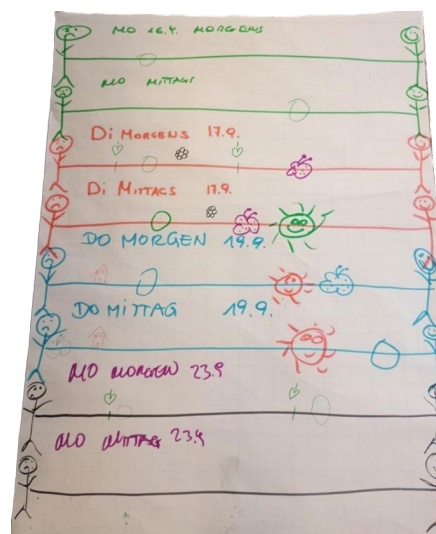 MO 16.9. MORGENS
MO MITTAGS
Di MORGENS 17.9.
Di MITTAGS 17.9.
DO MORGEN 19.9.
DO MITTAG 19.9.
MO MORGEN 23.9
MO MITTAG 23.9